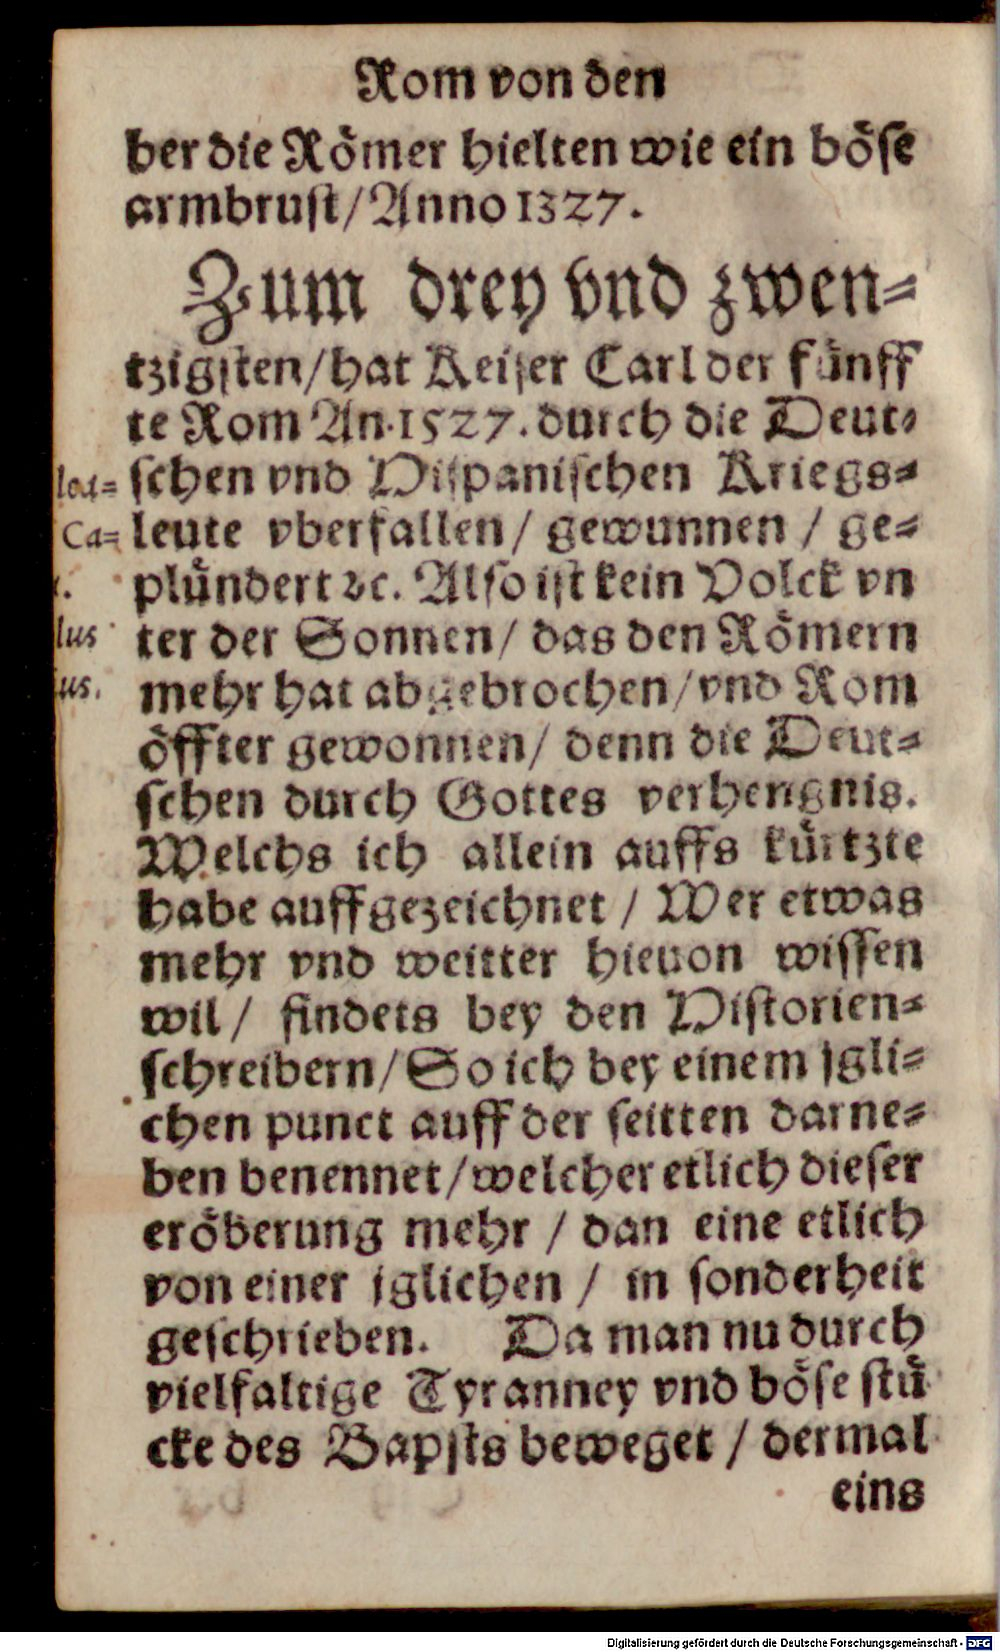 Rom von den
ber die Römer hielten wie ein böse
armbrust/Anno 1327.
Zum drey vnd zwen-
tzigsten/hat Keiser Carl der fünff
te Rom An.1527.durch die Deut-
schen vnd Hispanischen Kriegs-
leute vberfallen/ gewunnen / ge-
plündert ꝛc. Also ist kein Volck vn
ter der Sonnen/ das den Römern
mehr hat abgebrochen/vnd Rom
öffter gewonnen/ denn die Deut-
schen durch Gottes verhengnis.
Welchs ich allein auffs kürtzte
habe auffgezeichnet / Wer etwas
mehr vnd weitter hieuon wissen
wil/ findets bey den Historien-
schreibern/So ich bey einem jgli-
chen punct auff der seitten darne-
ben benennet/welcher etlich dieser
eröberung mehr / dan eine etlich
von einer jglichen / in sonderheit
geschrieben. Da man nu durch
vielfaltige Tyranney vnd böse stü
cke des Bapsts beweget / dermal
eins
Ca-
lus
us.
Digitalisierung gefördert durch die Deutsche Forschungsgemeinschaft - DFG